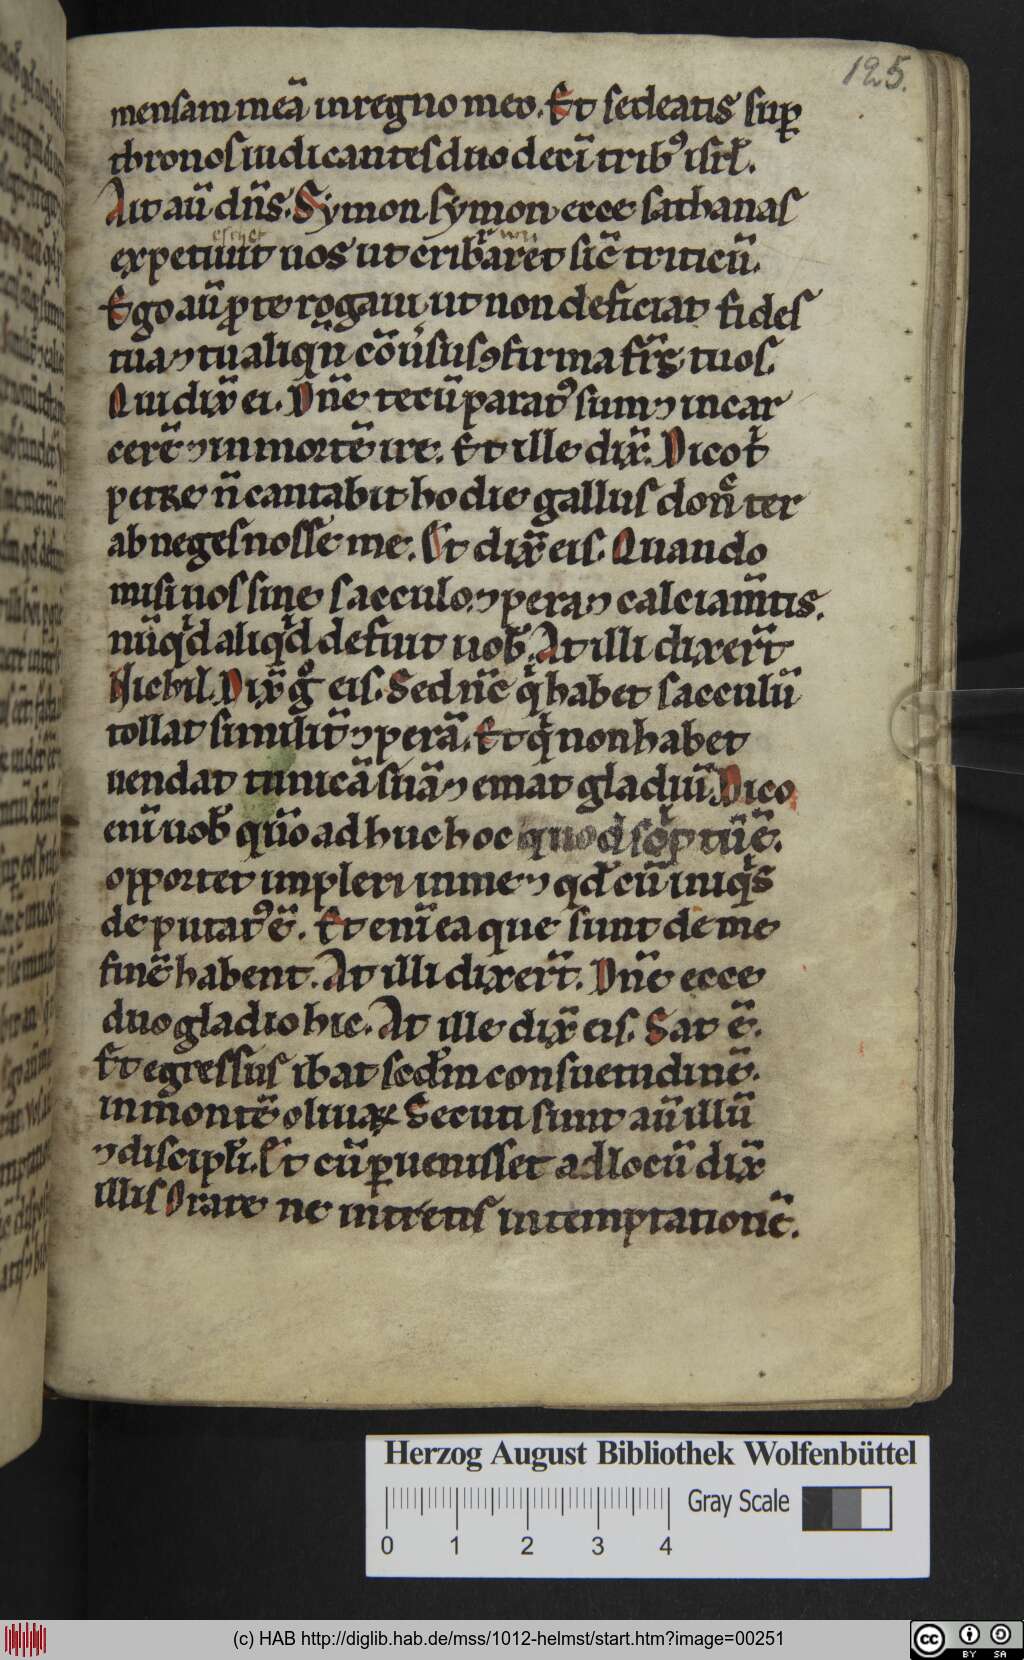 125.
mensam meā in regno meo. Et sedeatis suꝑ
thronos iudicantes duodecī tribꝰ isrł.
Ait aū dn̄s. Symon symon ecce sathanas
expetiuit uos ut cribraret sic̄ triticū.
Ego aū ꝓ te rogaui ut non deficiat fides
tua ⁊ tu aliqn̄ cōu̓sus ꝯfirma fr̄s tuos.
Qui dix̄ ei. Dn̄e tecū paratꝰ sum ⁊ in car
cerē ⁊ in mortē ire. Et ille dix̄. Dico t̄
petre n̄ cantabit hodie gallus donͤ ter
abneges nosse me. Et dix̄ eis. Quando
misi uos sine sacculo ⁊ pera ⁊ calciam̄tis.
nūqͥd aliqͥd defuit uob̄. At illi dixer̄t
Nichil. Dix̄ gͦ eis. Sed nc̄ qͥ habet sacculū
tollat similit̄ ⁊ perā. Et qͥ non habet
uendat tunicā suā ⁊ emat gladiū. Dico
enī uob̄ qm̄o adhuc hoc quod scͥptū ē.
opportet impleri in me ⁊ qd̄ cū iniqͥs
deputatꝰ ē. Et enī ea que sunt de me
finē habent. At illi dixer̄t. Dn̄e ecce
duo gladio hic. At ille dix̄ eis. Sat ē.
Et egressus ibat scd̄m consuetudinē.
in montē oliuaꝝ Secuti sunt aū illū
⁊ discipłi. Et cū ꝑuenisset ad locū dix̄
illis Orate ne intretis in temptationē.
Herzog August Bibliothek Wolfenbüttel
Gray Scale
0 1 2 3 4
(c) HAB http://diglib.hab.de/mss/1012-helmst/start.htm?image=00251
cc BY SA